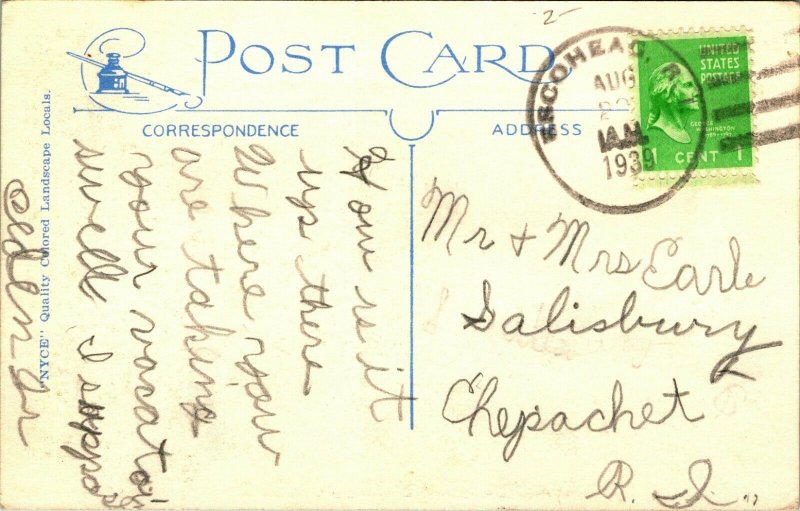 POST CARD
CORRESPONDENCE
ADDRESS
"NYCE" Quality Colored Landscape Locals.
2-
AUG
1 AM
1939
R.I.
UNITED
STATES
POSTAGE
GEORGE
WASHINGTON
CENT 1
How is it
up there
Where you
are taking
your vacat
swell I suppose
Mr & Mrs Earle
Salisbury
Chepachet
R. I.